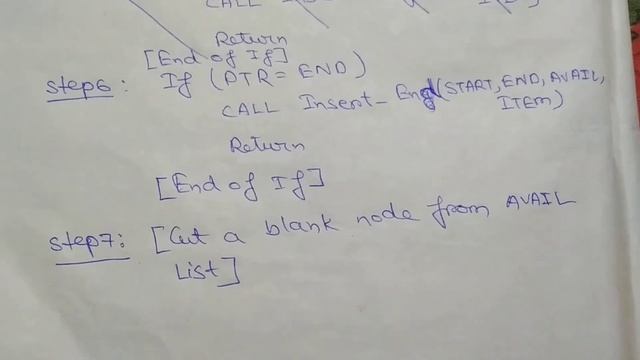 CALL
Return
[End of If]
Step6: If (PTR = END)
CALL Insert_End(START, END, AVAIL,
ITEM)
Return
[End of If]
Step7: [Cut a blank node from AVAIL
List]